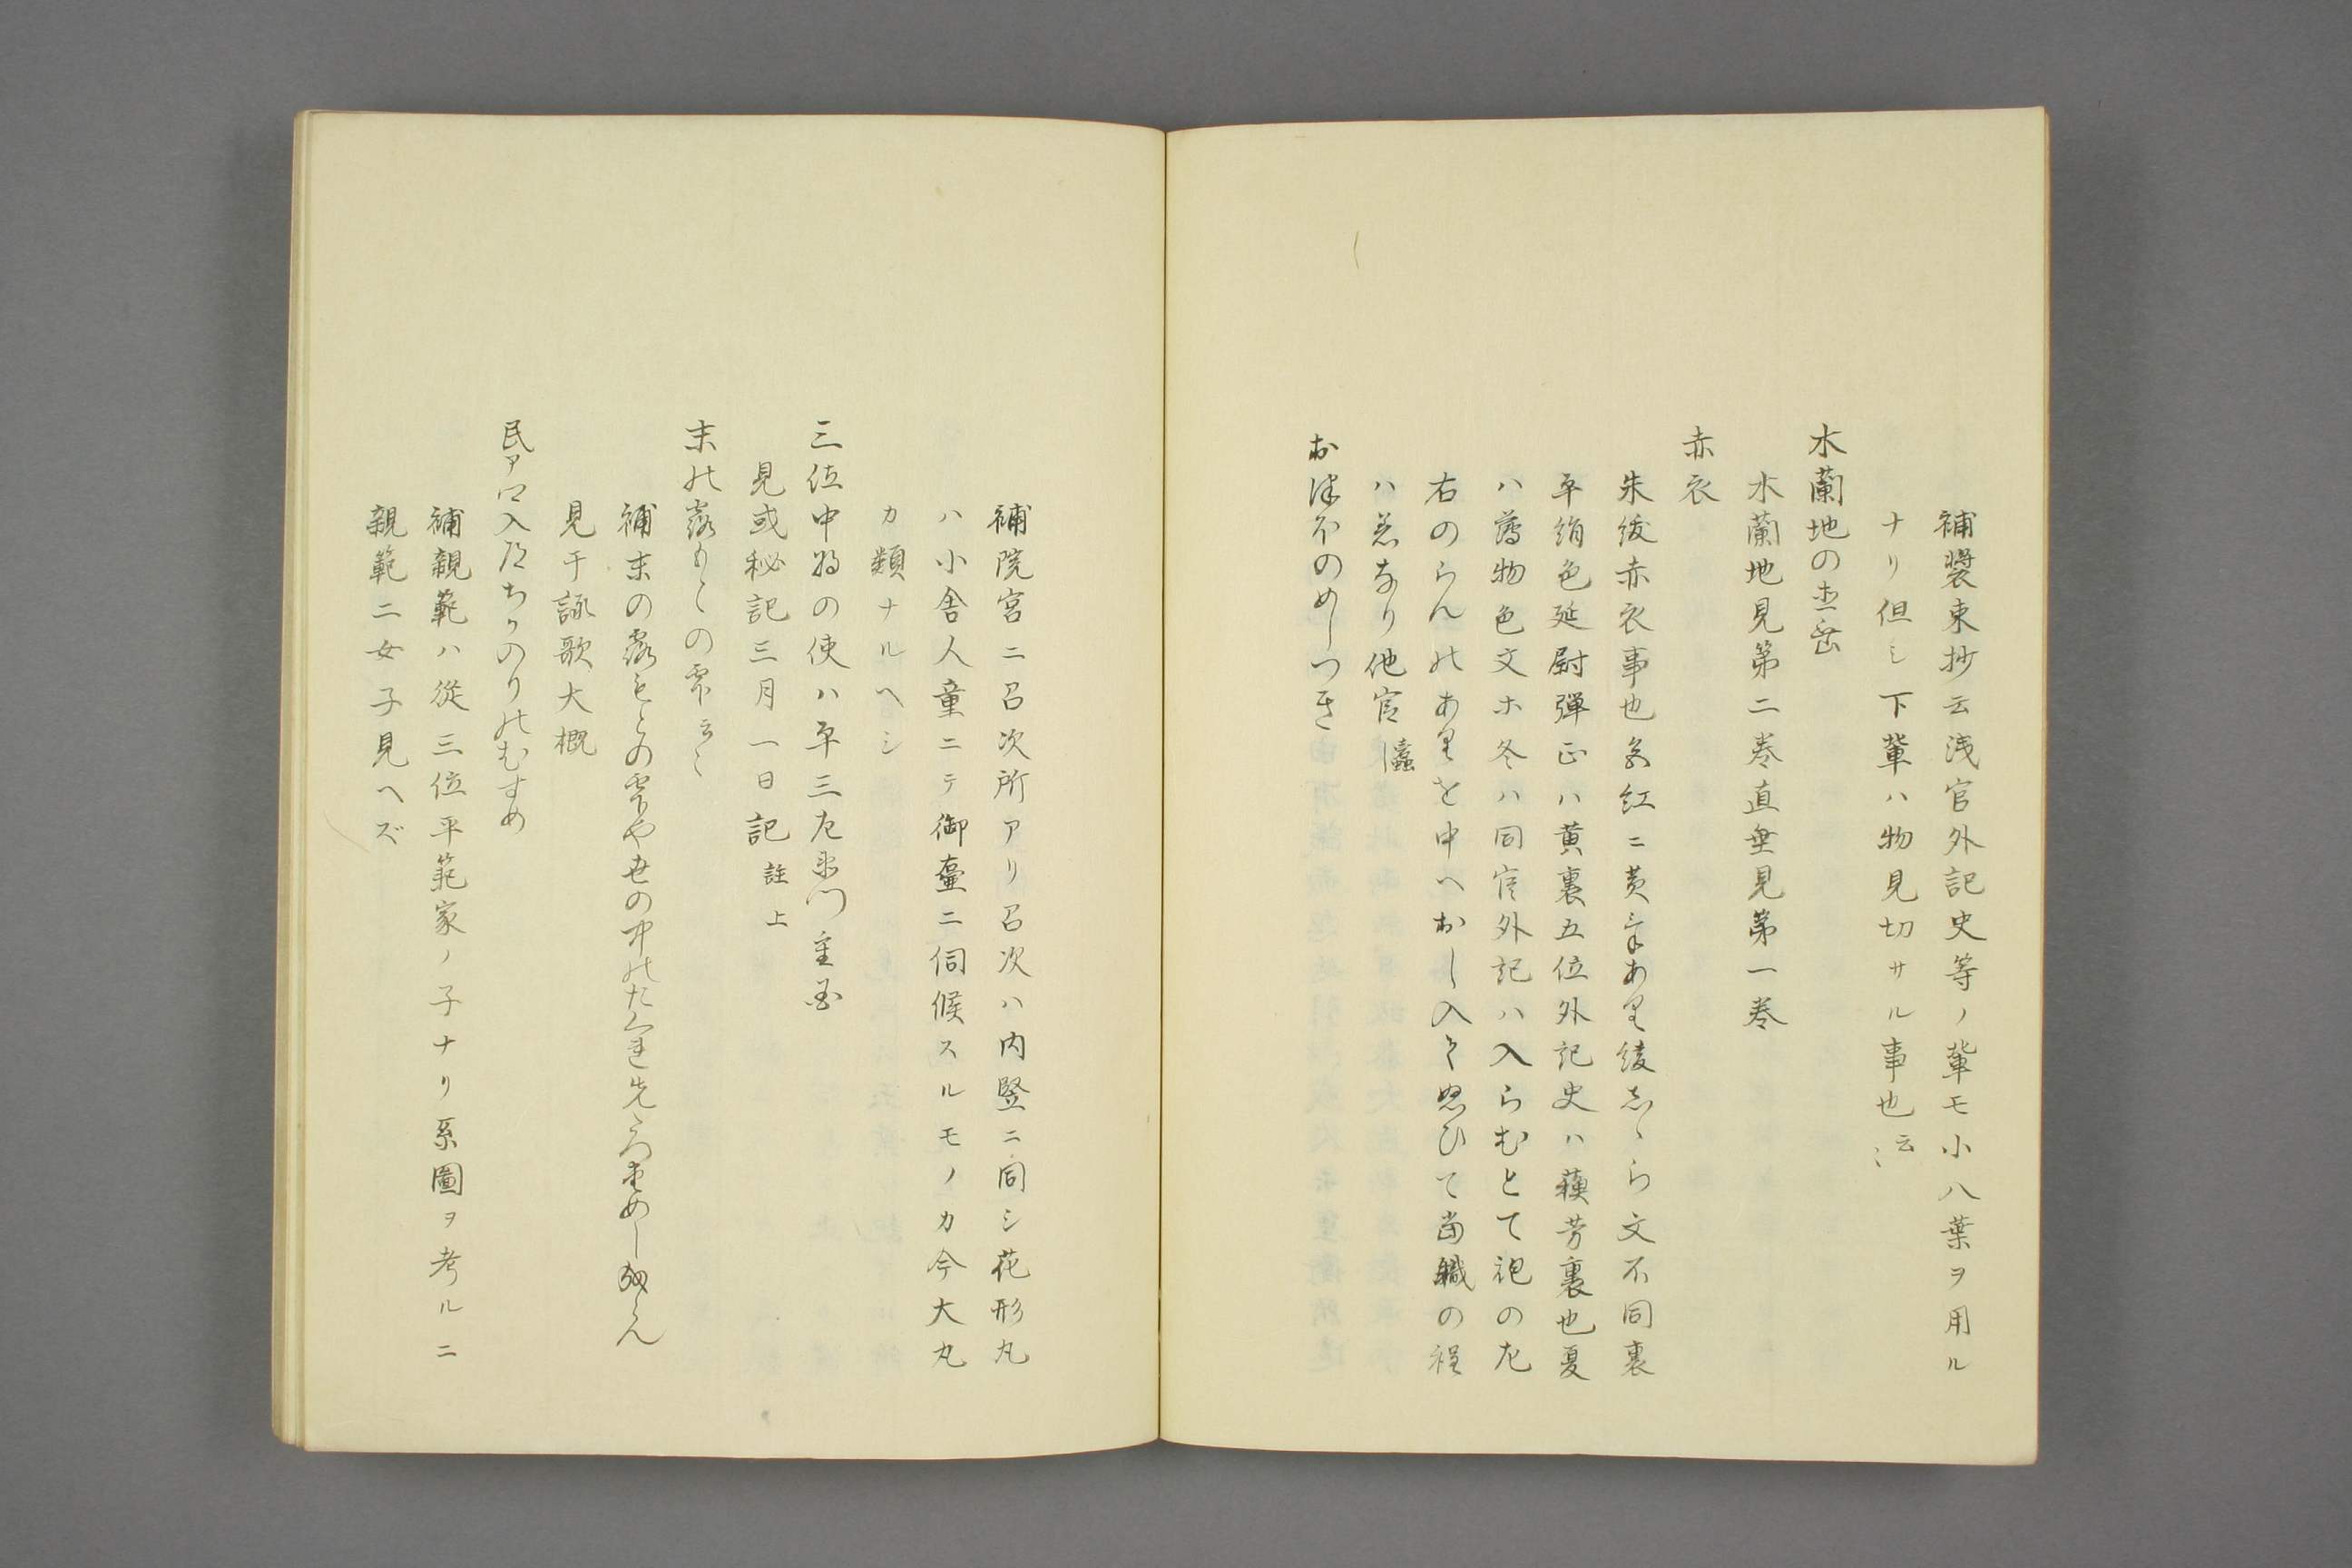 補装束抄云浅官外記史等ノ輩モ小八葉ヲ用ル
ナリ但シ下輩ハ物見切サル事也云〻
木蘭地の
木蘭地見第二巻直垂見第一巻
赤衣
朱紱赤衣事也 紅ニ黄 あり綾 ら文不同裏
平絹色延尉弾正ハ黄裏五位外記史ハ蘓芳裏也夏
ハ薄物色文ホ冬ハ同官外記ハ入らむとて袍の左
右のらんのありを中へおし入て思ひて当職の程
ハ着なり他官
おほ のめしつき
補院宮ニ召次所アリ召次ハ内竪ニ同シ花形丸
ハ小舎人童ニテ御臺ニ伺候スルモノカ今大丸
カ類ナルヘシ
三位中将の使ハ平三左衛門重国
見或秘記三月一日記 註上
末の露もとの雫云〻
補末の露もとの雫や世の中のたくれ先たつためしなるらん
見于詠歌大概
民ア口入道ちかのりのむすめ
補親範ハ従三位平範家ノ子ナリ系圖ヲ考ルニ
親範ニ女子見ヘズ